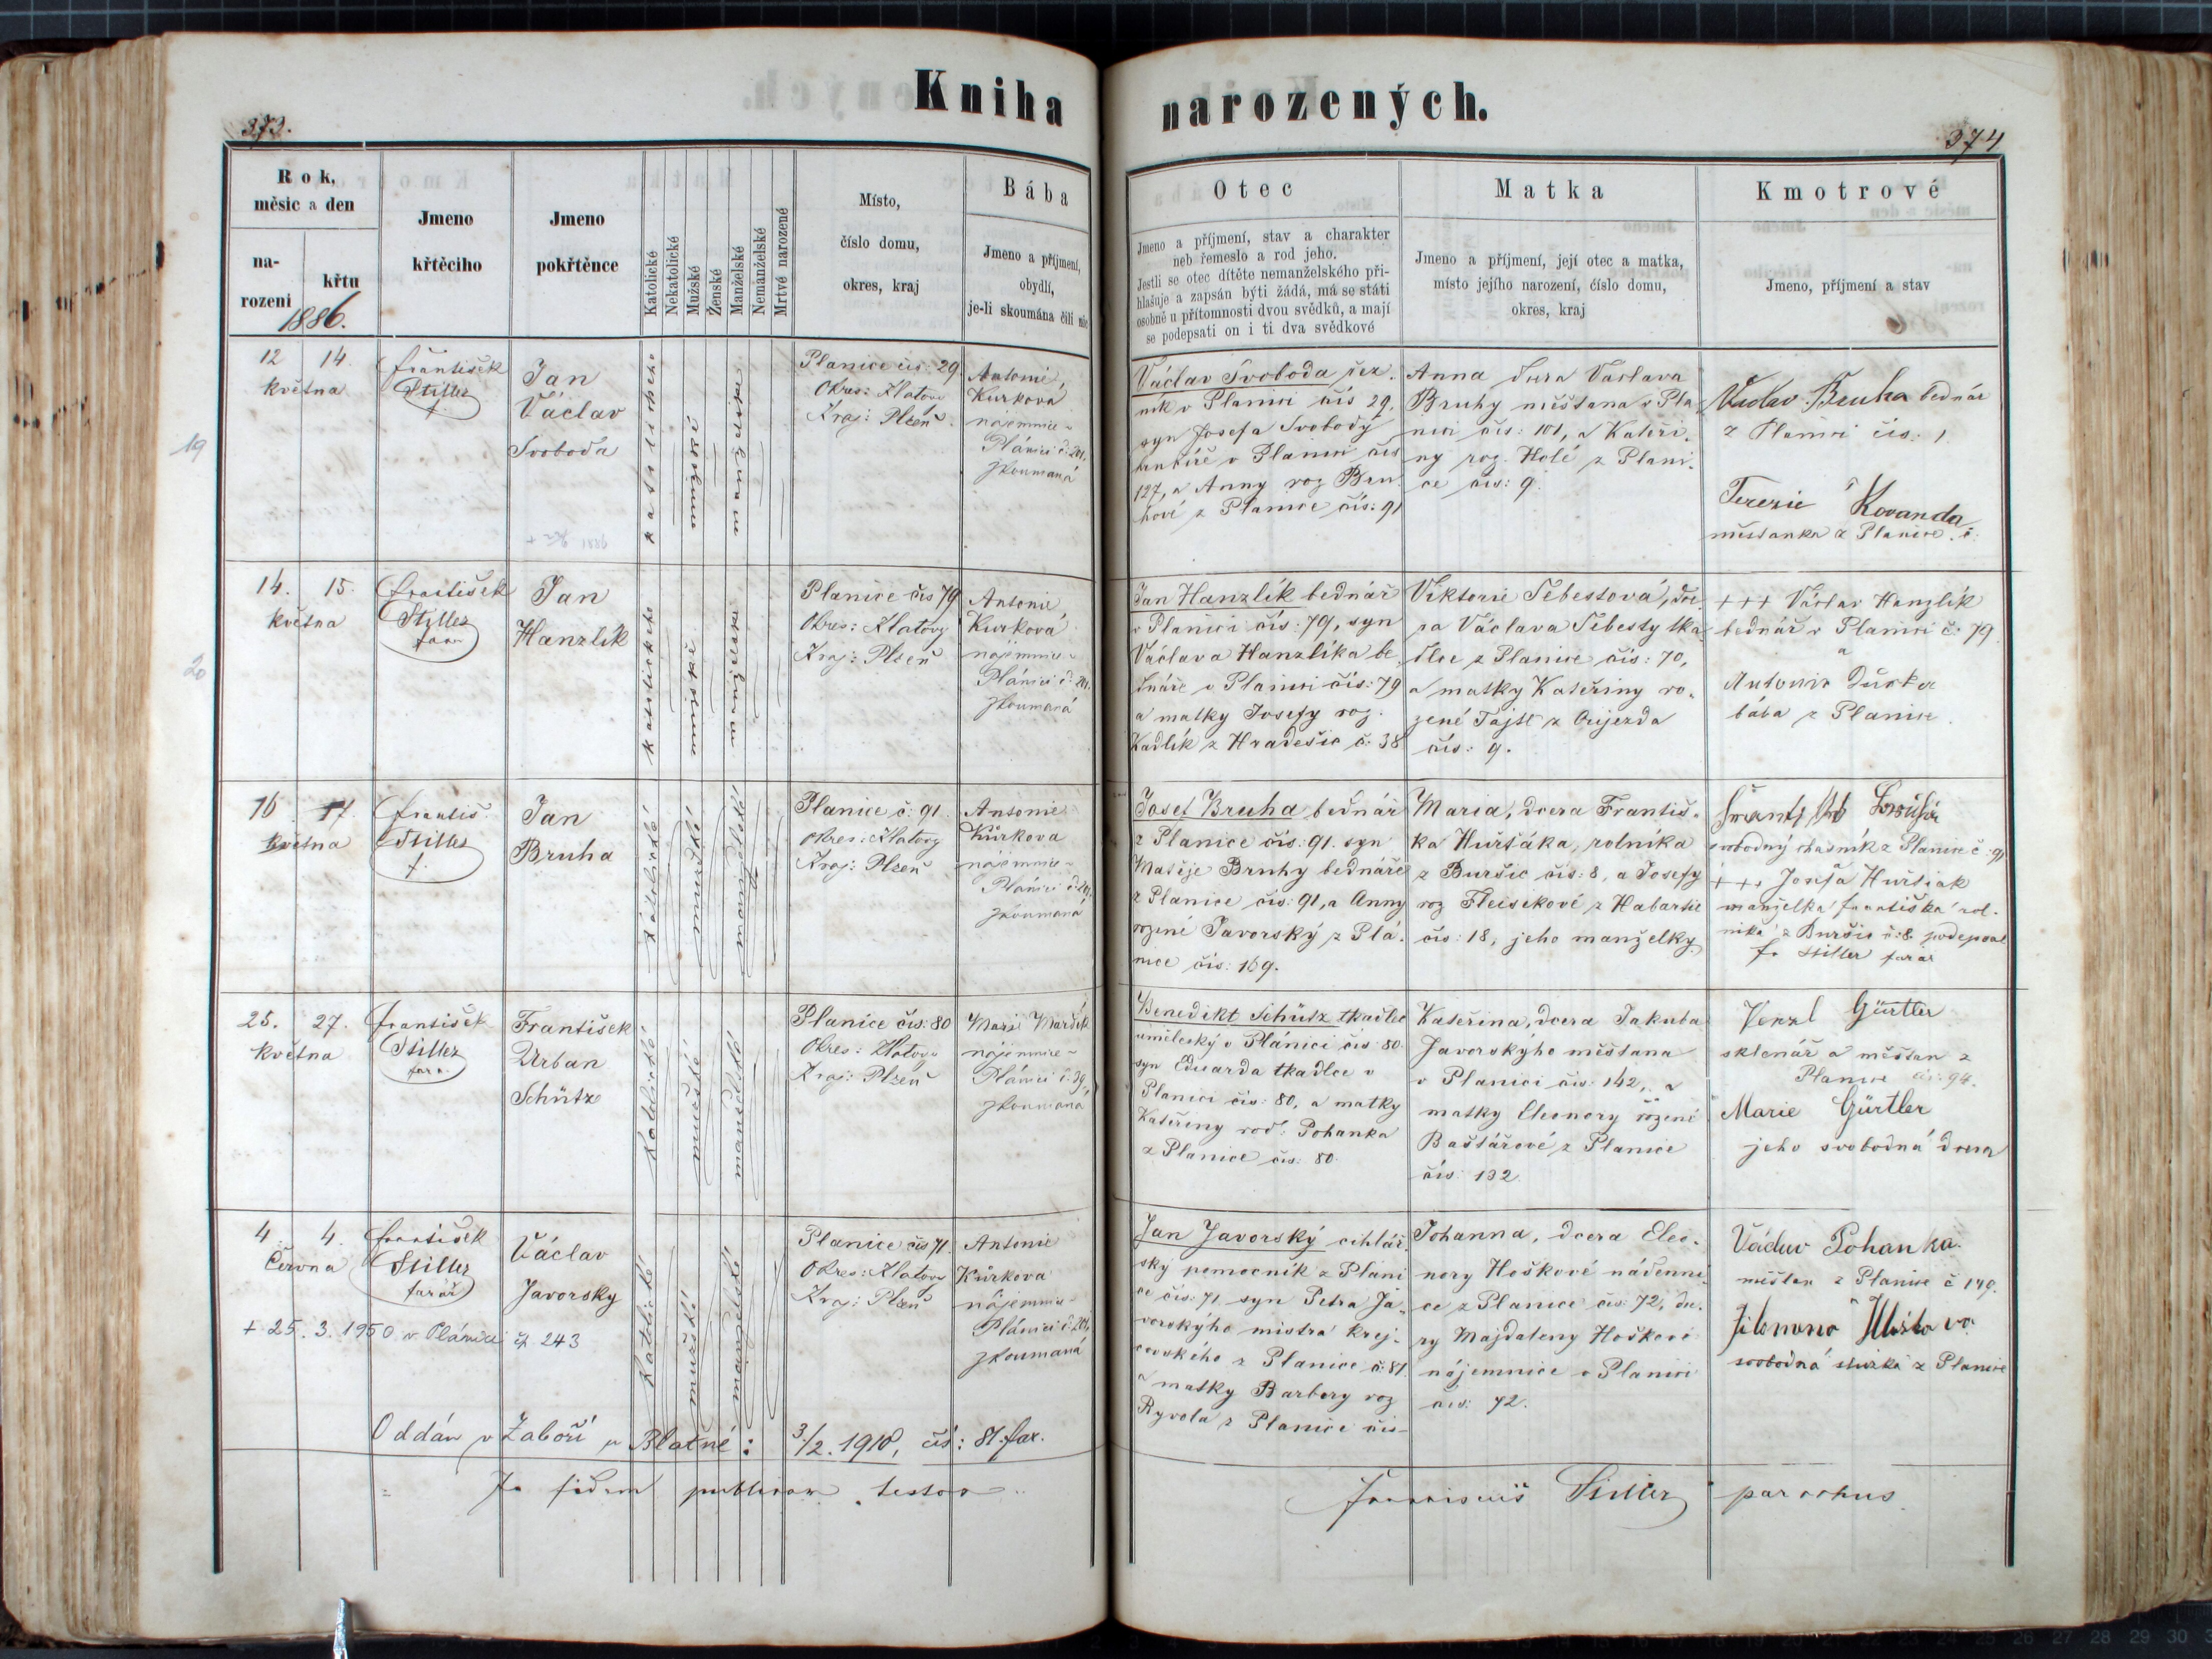 Kniha
narozených.
373.
374
Rok,
měsíc a den
na-
rozeni
křtu
1886.
Jmeno
křtěcího
Jmeno
pokřtěnce
Katolické
Nekatolické
Mužské
Ženské
Manželské
Nemanželské
Mrtvé narozené
Místo,
číslo domu,
okres, kraj
Bába
Jmeno a příjmení,
obydlí,
je-li skoumána čili nic
Otec
Jmeno a příjmení, stav a charakter
neb řemeslo a rod jeho.
Jestli se otec dítěte nemanželského při-
hlašuje a zapsán býti žádá, má se státi
osobně u přítomnosti dvou svědků, a mají
se podepsati on i ti dva svědkové
Matka
Jmeno a příjmení, její otec a matka,
místo jejího narození, číslo domu,
okres, kraj
Kmotrové
Jmeno, příjmení a stav
19
12 14.
května
František
Stiller
f.
Jan
Václav
Svoboda
1886
katolického
mužské
manželské
Planice čís: 29
Okres: Klatovy
Kraj: Plzeň
Antonie
Kurkova
nájemnice
Plánici č: 201,
zkoumaná
Václav Svoboda řez
ník v Planici čís 29,
syn Josefa Svobody
v Planici čís
127, a Anny roz Bru
hové z Planice čís: 91
Anna dcera Václava
Bruhy měšťana v Pla
nici čís: 101, a Kateři-
ny roz. Holé z Plani-
ce čís: 9.
Václav Bruha bednár
z Planici čís: 1
Terezie Kovanda
měšťanka z Planice
20
14. 15.
května
František
Stiller
farar
Jan
Hanzlík
katolického
mužské
manželské
Planice čís 79
Okres: Klatovy
Kraj: Plzeň
Antonie
Kurková
nájemnice
Plánici č: 201.
zkoumaná
Jan Hanzlík bednář
v Planici čís: 79, syn
Václava Hanzlíka be
dnáře v Planici čís: 79
a matky Josefy roz.
Kadlík z Hradešic č: 38
Viktorie Šebestová, dce-
ra Václava Šebesty tka
dlce z Planice čís: 70,
a matky Kateřiny ro-
zené Tajšl z Oujezda
čís: 9.
+++ Václav Hanzlík
bednář v Planici č: 79
a
bába z Planice.
16 17.
května
Františ.
Stiller
f.
Jan
Bruha
Katolické
mužské
manželské
Planice č: 91
Okres: Klatovy
Kraj: Plzeň
Antonie
Kůrkova
nájemnice
Plánici č: 201,
zkoumaná
Josef Bruha bednář
z Planice čís: 91. syn
Matěje Bruhy bednáře
z Planice čís: 91, a Anny
rozené Javorský z Plá-
nice čís: 169.
Maria, dcera Františ-
ka Huršáka, rolníka
z Buršic čís: 8, a Josefy
roz Fleisikové z Habartic
čís: 18, jeho manželky.
svobodný z Planice č: 91
+++ Josefa Huršiak
manželka Františka rol-
níka z Buršic č: 8. podepsal
f. Stiller farár
25. 27.
května
František
Stiller
fara.
František
Urban
Schütz
Katolické
mužské
manželské
Planice čís: 80
Okres: Klatovy
Kraj: Plzeň
Marie
nájemnice
Plánici č: 39,
zkoumaná
Benedikt Schütz tkadlec
umělecký v Plánici čís 80.
syn Eduarda tkadlce v
Planici čís: 80, a matky
Kateřiny rod: Pohanka
z Planice čís: 80.
Kateřina, dcera Jakuba
Javorskýho měšťana
v Planici čís: 142, a
matky Eleonory rozené
Baštářové, z Planice
čís: 132.
Venzl Gürtler
sklenář a měšťan z
Planice čís: 94.
Marie Gürtler
jeho svobodná dcera
4. 4.
Června
František
Stiller
farář
Václav
Javorsky
+ 25. 3. 1950 v Plánici čp 243
Katolické
mužské
manželské
Planice čís 71.
Okres: Klatovy
Kraj: Plzeň
Antonie
Kůrkova
nájemnice
Plánici č: 201,
zkoumaná
Jan Javorský cihlář-
ský pomocník z Plani
ce čís: 71. syn Petra Ja-
vorskýho mistra krej-
čovského z Planice č: 81.
a matky Barbory roz
Ryvola z Planice čís-
Johanna, dcera Eleo-
nory Hoškové nádenni-
ce z Planice čís: 72, dce-
ry Majdaleny Hoškové
nájemnice v Planici
čís: 72.
Václav Pohanka.
měšťan z Planice č 149.
svobodná služka z Planice
Oddán v Záboří u Blatné: 3./2. 1910, čís: 81. far.
In fidem publicam testor
Franciscus Stiller parochus.